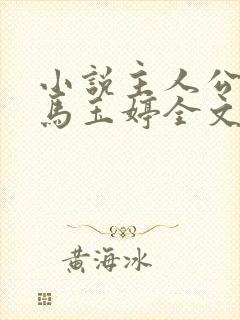 小说主人公
马玉婷全文
黄海冰